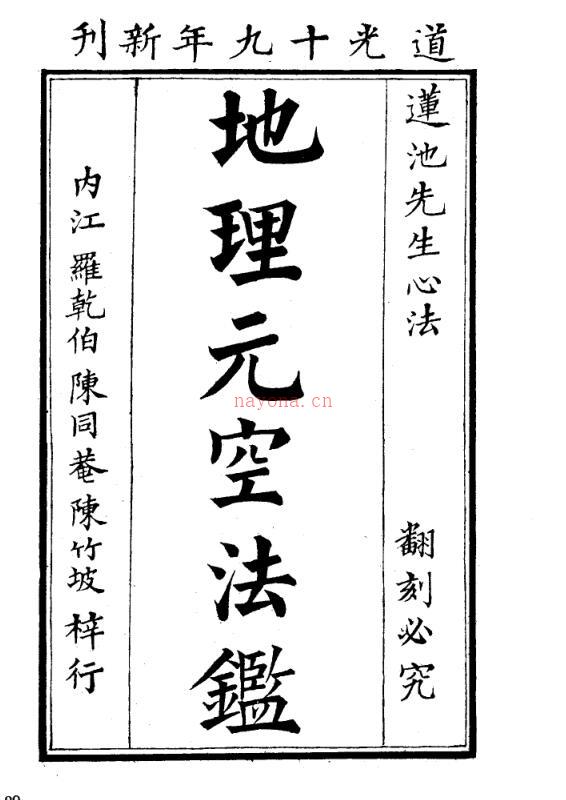 道光十九年新刊
蓮池先生心法 翻刻必究
地理元空法鑑
内江 羅乾伯 陳同菴 陳竹坡 梓行
nayona.cn